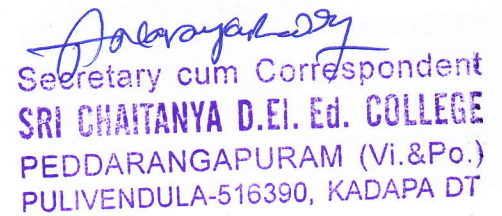 Secretary cum Correspondent
SRI CHAITANYA D.El. Ed. COLLEGE
PEDDARANGAPURAM (Vi.&Po.)
PULIVENDULA-516390, KADAPA DT